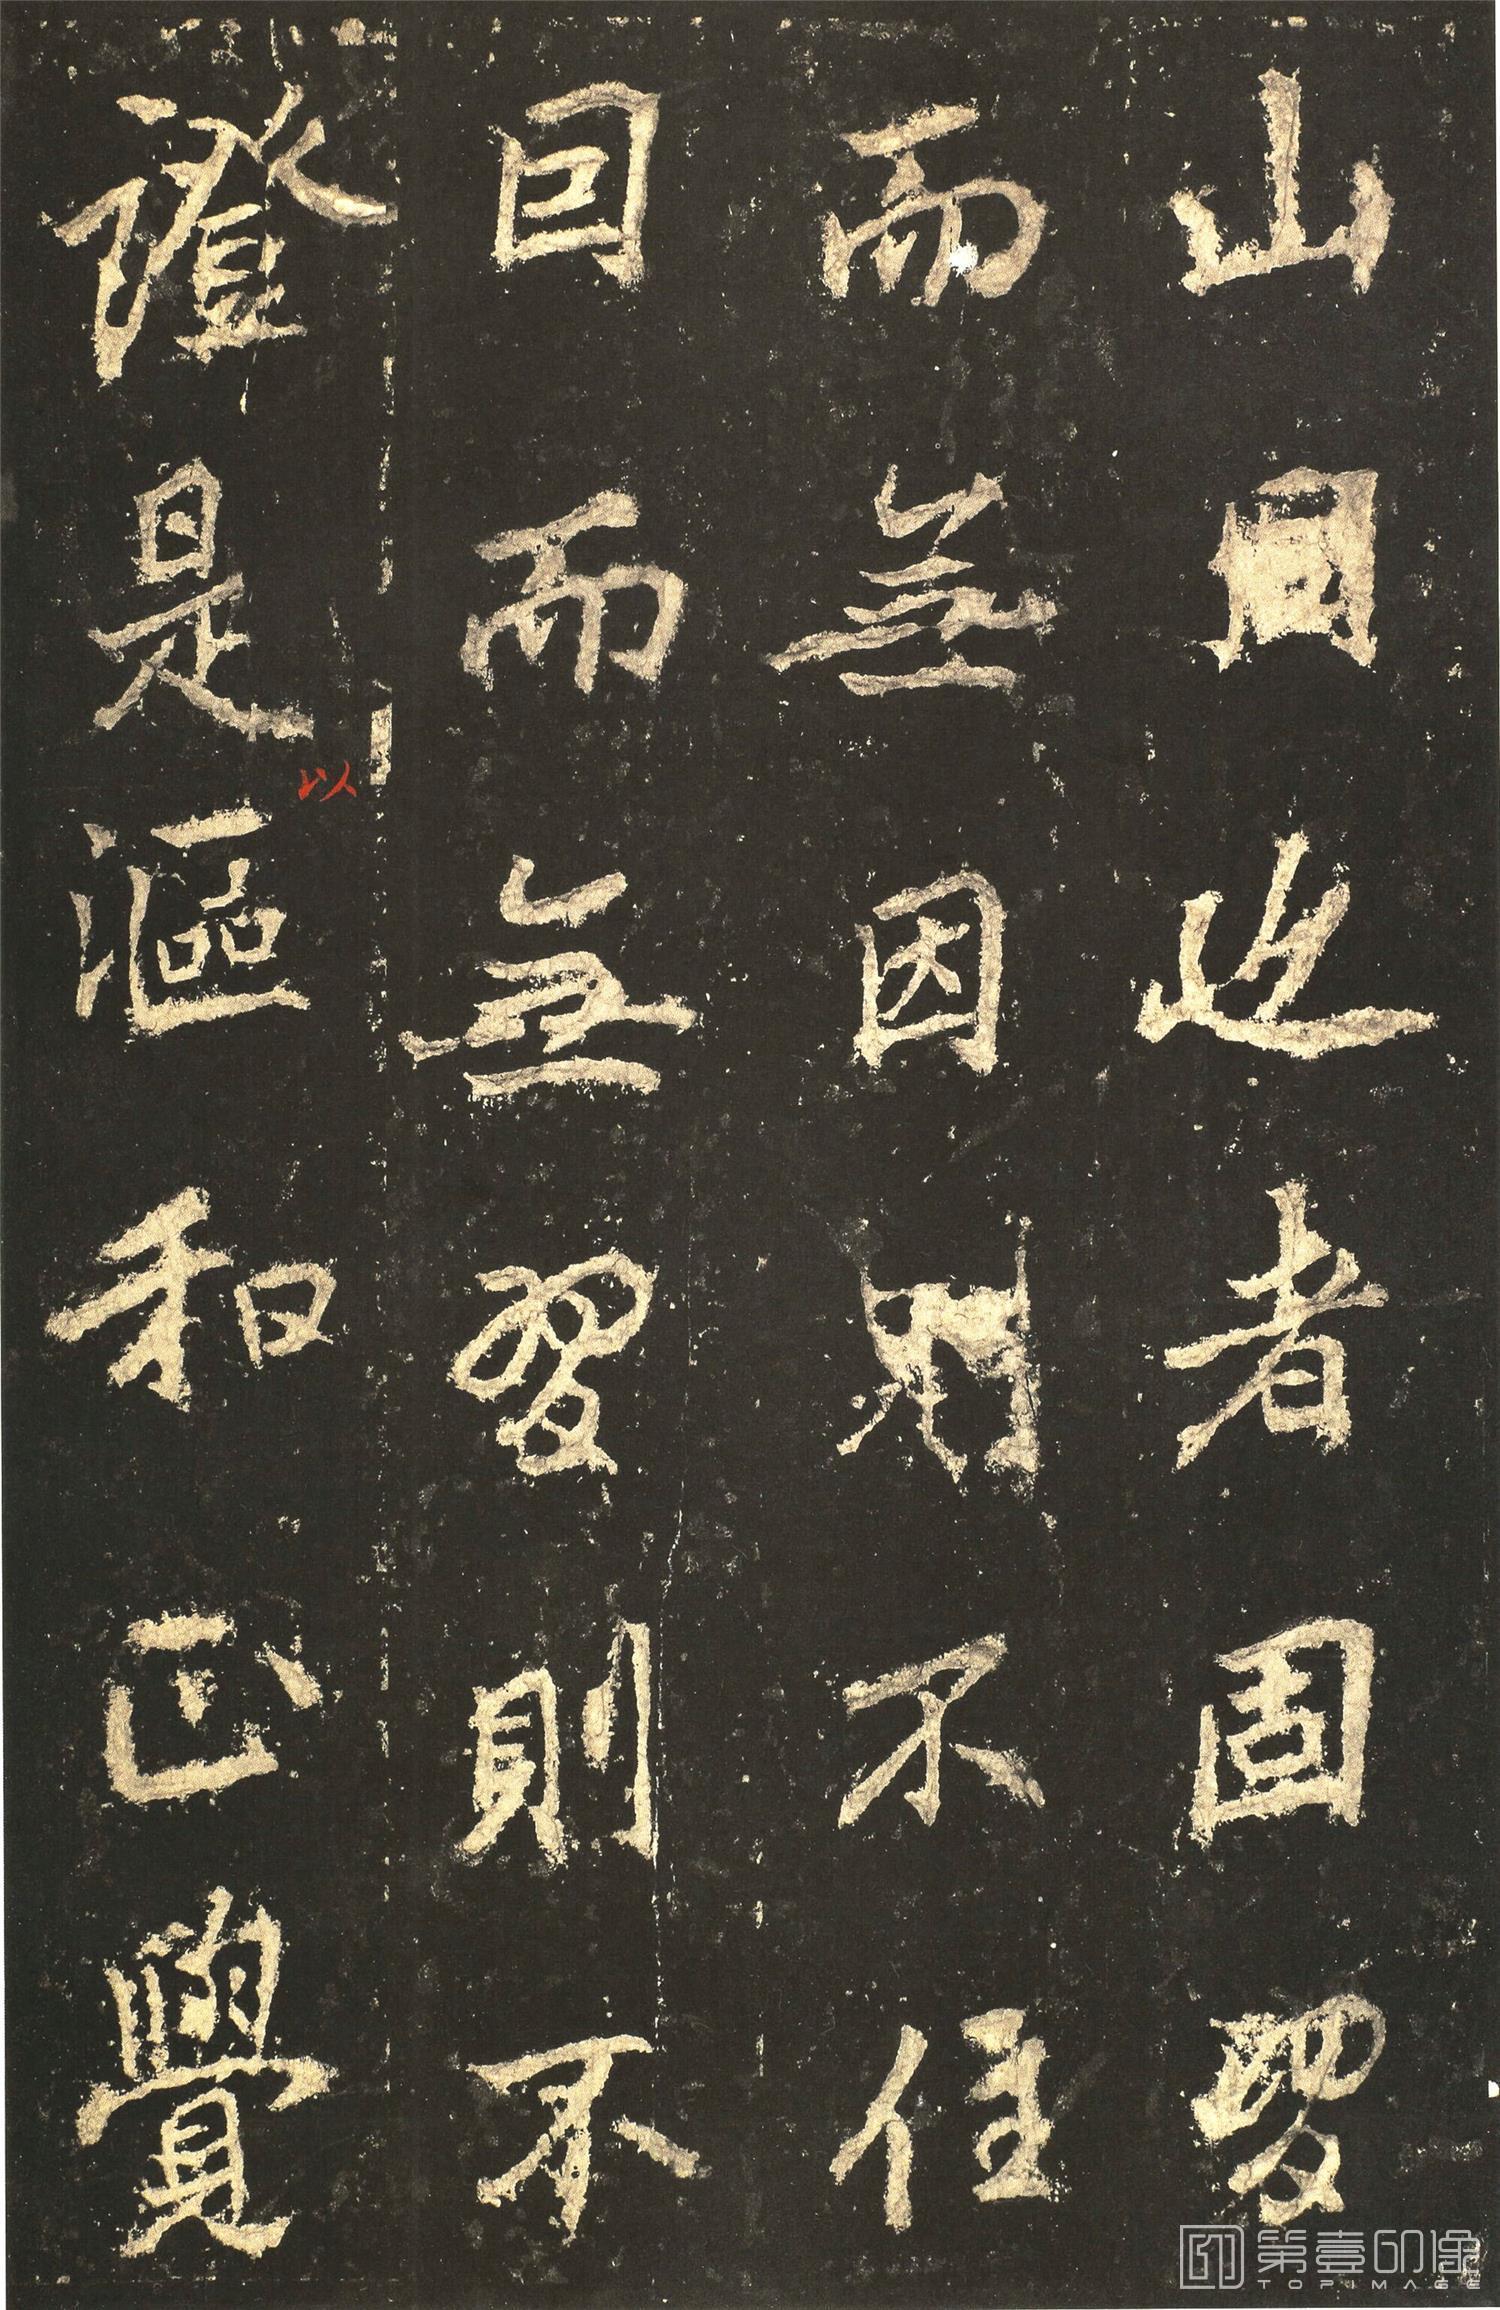 山也者固習
而無因則不住
因而無習則不
證是以漚和正覺
第壹印像
TOPIMAGE